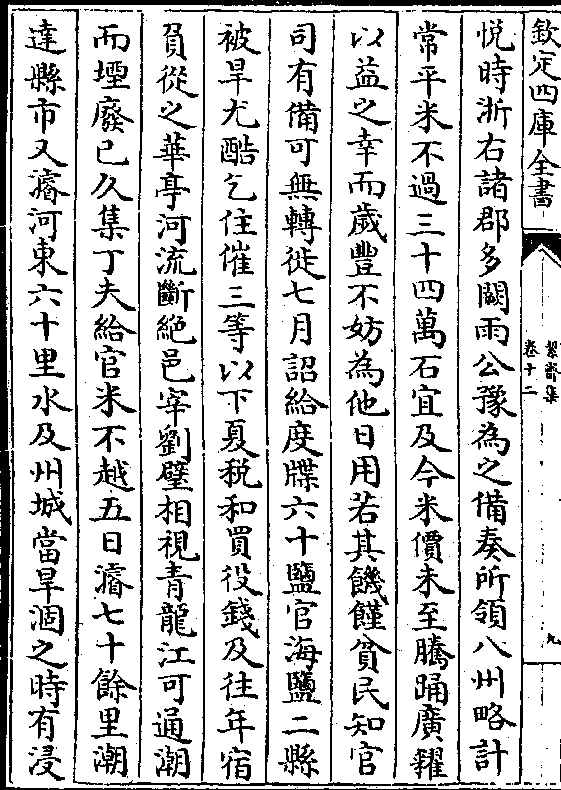 欽定四庫全書
絜齋集
卷十二
九
悅時浙右諸郡多闕雨公豫為之備奏所領八州略計
常平米不過三十四萬石宜及今米價未至騰踊廣糴
以益之幸而歲豐不妨為他日用若其饑饉貧民知官
司有備可無轉徙七月詔給度牒六十鹽官海鹽二縣
被旱尤酷乞住催三等以下夏稅和買役錢及往年宿
負從之華亭河流斷絕邑宰劉璧相視青龍江可通潮
而堙廢已久集丁夫給官米不越五日濬七十餘里潮
達縣市又濬河東六十里水及州城當旱涸之時有浸